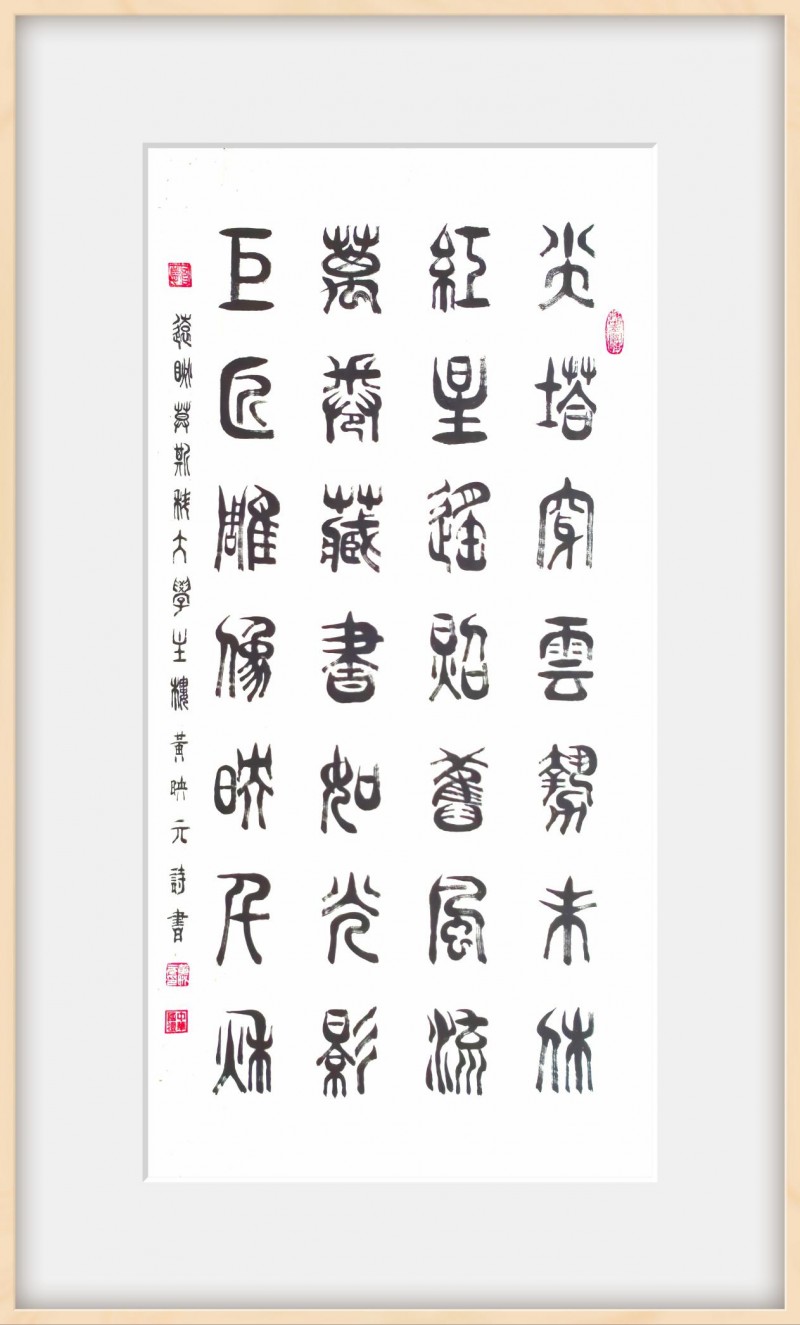 尖塔穿雲勢未休
紅星遥照舊風流
萬卷藏書如光影
巨匠雕像映千秋
遠眺莫斯科大學主樓 黃映元詩書